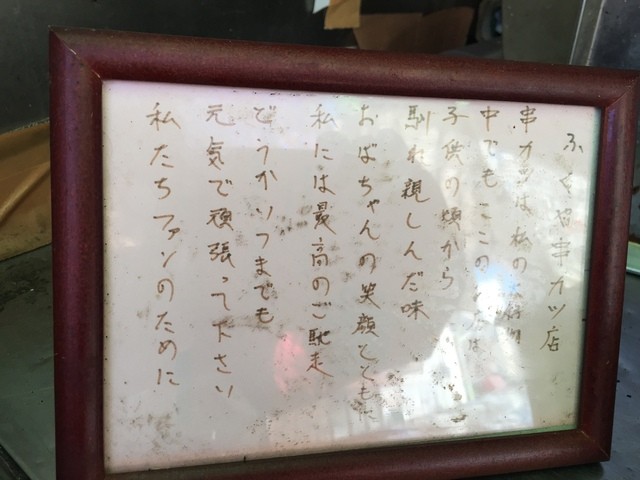 ふくや串カツ店
串カツは私の大好物
中でもここの
子供の頃から
馴れ親しんだ味
おばちゃんの笑顔とともに
私には最高のご馳走
どうかいつまでも
元気で頑張って下さい
私たちファンのために